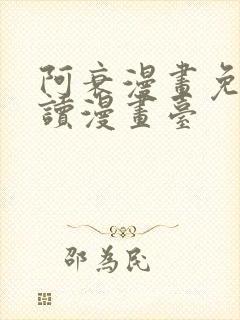 阿衰漫畫免
讀漫畫臺
邵為民